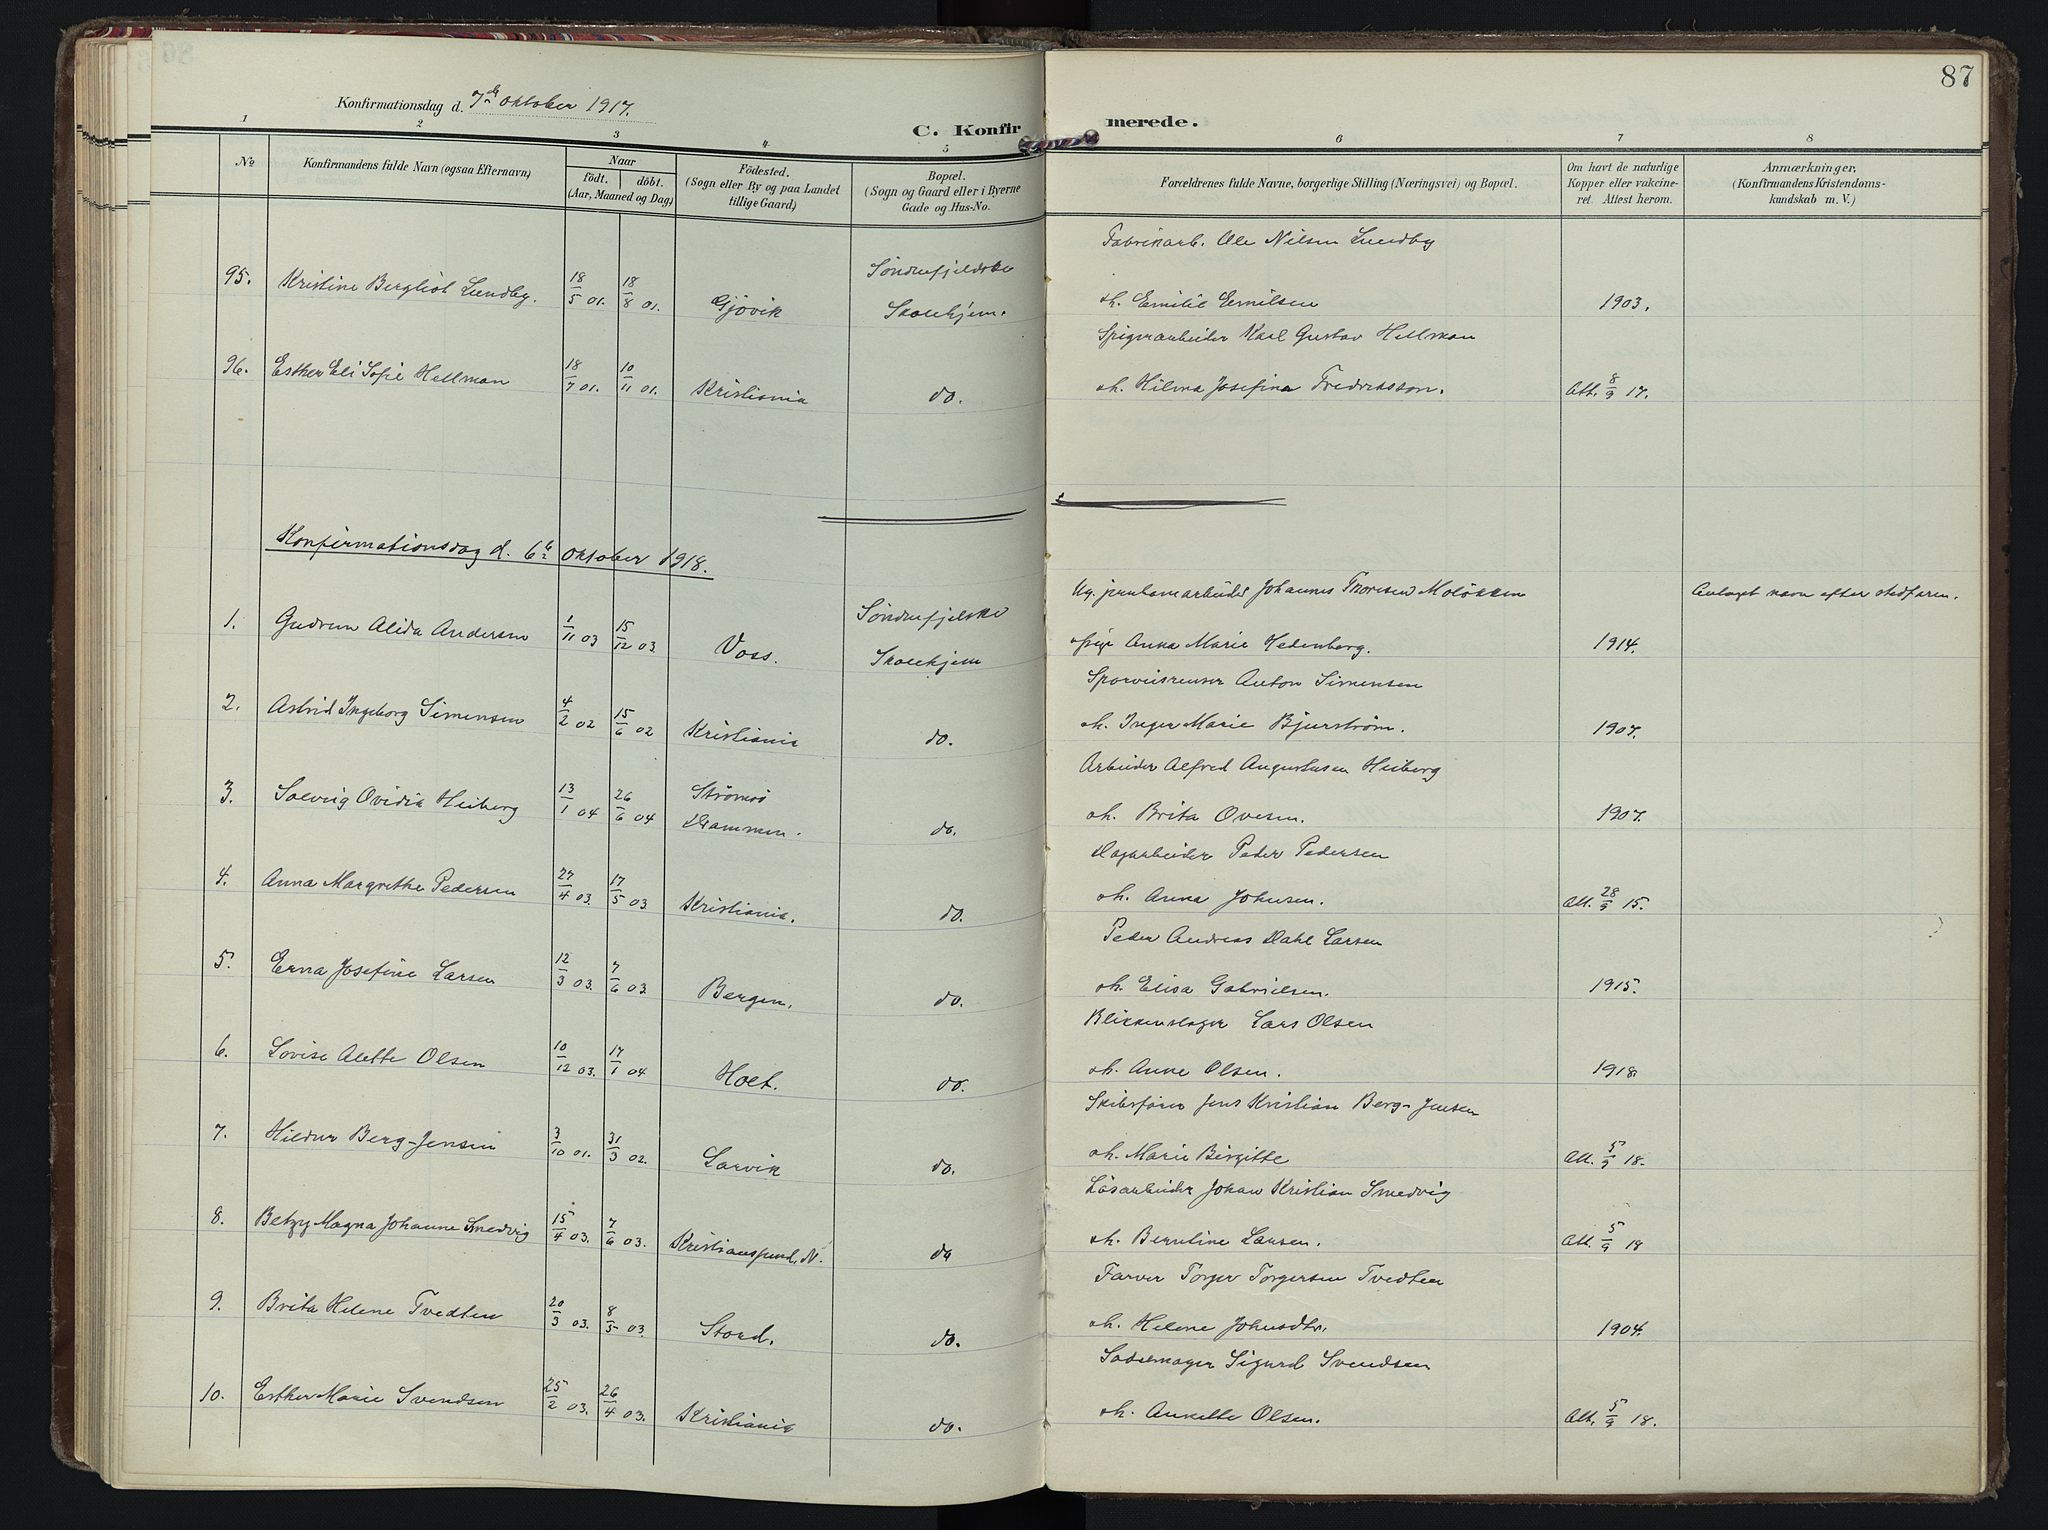 87
Konfirmationsdag d. 7de oktober 1917.
C. Konfirmerede.
1 2 3 4 5 6 7 8
No
Konfirmandens fulde Navn (ogsaa Efternavn)
Naar
födt. döbt.
(Aar, Maaned og Dag)
Födested.
(Sogn eller By og paa Landet
tillige Gaard)
Bopæl.
(Sogn og Gaard eller i Byerne
Gade og Hus-No.
Forældrenes fulde Navne, borgerlige Stilling (Næringsvei) og Bopæl.
Om havt de naturlige
Kopper eller vakcine-
ret. Attest herom.
Anmærkninger.
(Konfirmandens Kristendoms-
kundskab m. V.)
Fabrikarb. Ole Nilsen Lundby
95. Kristine Bergliot Lundby. 18/5 01. 18/8 01. Gjövik Söndenfjeldske
Skolehjem. oh. Emilie Emilsen 1903.
Spigerarbeider Karl Gustav Hellman
96. Esther Eli Sofie Hellman 18/7 01. 10/11 01. Kristiania do. oh. Hilma Josefina Fredriksson. Att. 8/9 17.
Konfirmationsdag d. 6te oktober 1918.
Ug. jernbanearbeider Johannes Thoresen Moløkken Antaget navn efter stedfaren.
1. Gudrun Alida Andersen 1/11 03 15/12 03. Voss. Søndenfjelske
Skolehjem opige Anna Marie Hedenberg. 1914.
Sporveisrenser Anton Simensen
2. Astrid Ingeborg Simensen 4/2 02 15/6 02 Kristiania do. oh. Inger Marie Bjurström. 1907.
Arbeider Alfred Augustusen Heiberg
3. Solveig Ovidia Heiberg 13/1 04 26/6 04 Strömsö
Drammen. do. oh. Brita Ovesen. 1907.
Dagarbeider Peder Pedersen
4. Anna Margrethe Pedersen 27/4 03. 17/5 03. Kristiania. do. oh. Anna Johnsen. Att. 28/9 15.
Peder Andreas Dahl Larsen
5. Erna Josefine Larsen 12/3 03. 7/6 03. Bergen. do. oh. Elisa Gabrielsen. 1915.
Blikkenslager Lars Olsen
6. Lovise Alette Olsen 10/12 03. 17/1 04 Holt. do. oh. Anne Olsen. 1918.
Skibsfører Jens Kristian Berg-Jensen
7. Hildur Berg-Jensen 3/10 01. 31/3 02. Larvik do. oh. Marie Birgitte Att. 5/9 18.
Løsarbeider Johan Kristian Smedvig
8. Betzy Magna Johanne Smedvig 15/4 03. 7/6 03. Kristianssund, N. do oh. Berntine Larsen. Att. 5/9 18
Farver Torger Torgersen Tvedten
9. Brita Helene Tvedten 20/3 03. 8/5 03. Stord. do. oh. Helene Johnsdtr. 1904.
Sadelmager Sigurd Svendsen
10. Esther Marie Svendsen 25/2 03. 26/4 03. Kristiania do. oh. Anette Olsen. Att. 5/9 18.